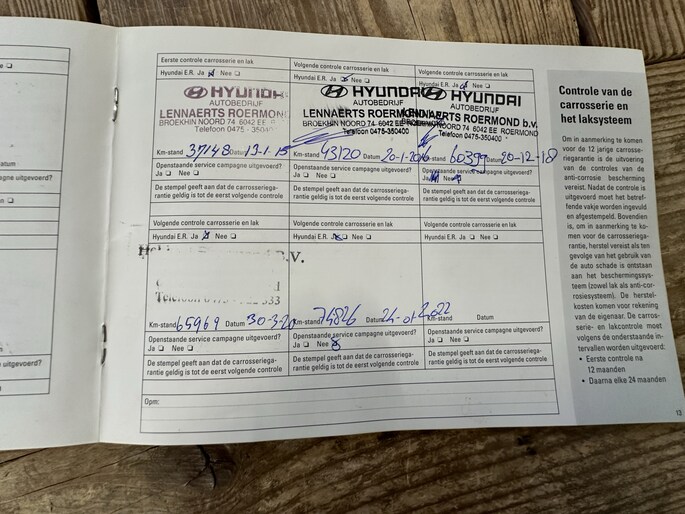 Eerste controle carrosserie en lak
Hyundai E.R. Ja Nee
HYUNDAI
AUTOBEDRIJF
LENNAERTS ROERMOND
BROEKHIN NOORD 74 6042 EE
Telefoon 0475 - 350400
Km-stand 37148 Datum 13-1-15
Openstaande service campagne uitgevoerd?
Ja Nee
De stempel geeft aan dat de carrosseriega-
rantie geldig is tot de eerst volgende controle
Volgende controle carrosserie en lak
Hyundai E.R. Ja Nee
HYUNDAI
AUTOBEDRIJF
LENNAERTS ROERMOND
BROEKHIN NOORD 74 6042 EE ROERMOND
Telefoon 0475-350400
Km-stand 43120 Datum 20-1-2016
Openstaande service campagne uitgevoerd?
Ja Nee
De stempel geeft aan dat de carrosseriega-
rantie geldig is tot de eerst volgende controle
Volgende controle carrosserie en lak
Hyundai E.R. Ja Nee
HYUNDAI
AUTOBEDRIJF
ROERMOND b.v.
6042 EE ROERMOND
Telefoon 0475-350400
Datum 20-12-18
Openstaande service campagne uitgevoerd?
Ja Nee
De stempel geeft aan dat de carrosseriega-
rantie geldig is tot de eerst volgende controle
Volgende controle carrosserie en lak
Hyundai E.R. Ja Nee
B.V.
Telefoon
Km-stand 65969 Datum 30-3-20
Openstaande service campagne uitgevoerd?
Ja Nee
De stempel geeft aan dat de carrosseriega-
rantie geldig is tot de eerst volgende controle
Volgende controle carrosserie en lak
Hyundai E.R. Ja Nee
Km-stand 74826 Datum 24-01-2022
Openstaande service campagne uitgevoerd?
Ja Nee
De stempel geeft aan dat de carrosseriega-
rantie geldig is tot de eerst volgende controle
Volgende controle carrosserie en lak
Hyundai E.R. Ja Nee
Km-stand Datum
Openstaande service campagne uitgevoerd?
Ja Nee
De stempel geeft aan dat de carrosseriega-
rantie geldig is tot de eerst volgende controle
Opm:
Controle van de
carrosserie en
het laksysteem
Om in aanmerking te komen
voor de 12 jarige carrosse-
riegarantie is de uitvoering
van de controles van de
anti-corrosie bescherming
vereist. Nadat de controle is
uitgevoerd moet het betref-
fende vakje worden ingevuld
en afgestempeld. Bovendien
is, om in aanmerking te ko-
men voor de carrosseriega-
rantie, herstel vereist als ten
gevolge van het gebruik van
de auto schade is ontstaan
aan het beschermingssys-
teem (zowel lak als anti-cor-
rosiesysteem). De herstel-
kosten komen voor rekening
van de eigenaar. De carros-
serie- en lakcontrole moet
volgens de onderstaande in-
tervallen worden uitgevoerd:
• Eerste controle na
12 maanden
• Daarna elke 24 maanden
13